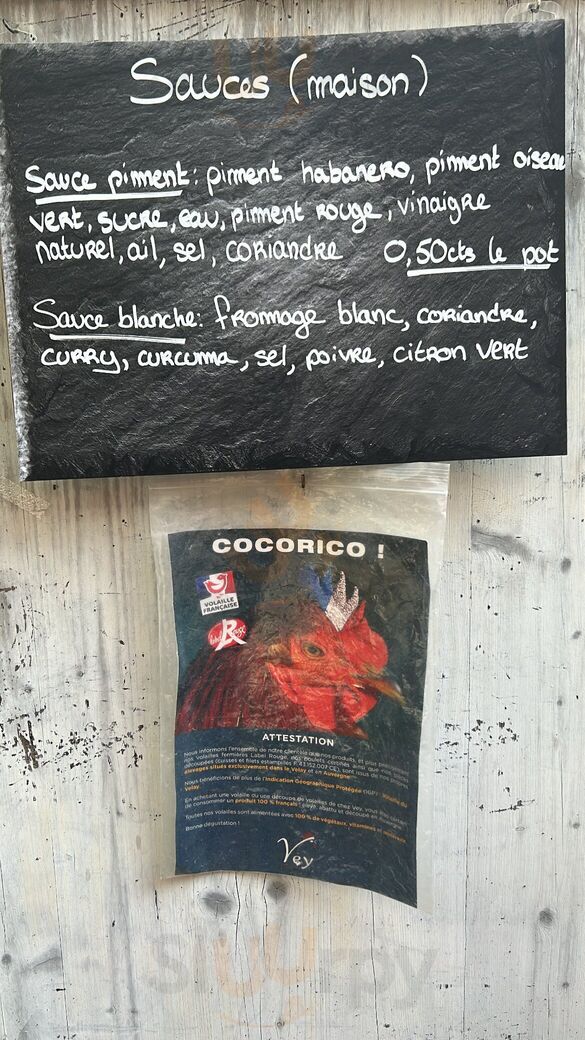 Sauces (maison)
Sauce piment: piment habanero, piment oiseau
vert, sucre, eau, piment rouge, vinaigre
naturel, ail, sel, coriandre 0,50cts le pot
Sauce blanche: frommage blanc, coriandre,
curry, curcuma, sel, poivre, citron vert
COCORICO !
VOLAILLE
FRANÇAISE
Label Rouge
ATTESTATION
Nous informons l'ensemble de notre clientèle que nos produits, et plus
nos volailles fermières Label Rouge, nos poulets certifiés ainsi que nos
découpées (cuisses et filets estampillés F 43.152.007 CE), sont issus de nos
élevages situés exclusivement dans le Velay et en Auvergne.
Nous bénéficions de plus de l'Indication Géographique Protégée (IGP)
Velay.
En achetant une volaille ou une découpe de volailles de chez Vey, vous
de consommer un produit 100 % français : élevé, abattu et découpé en
Toutes nos volailles sont alimentées avec 100 % de végétaux, vitamines et minéraux.
Bonne dégustation !
Vey
sluurpy